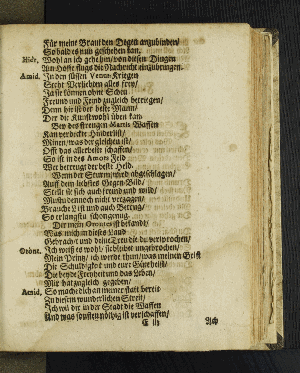 Für meine Braut den Degen anzubinden/
So bald es nun geschehen kan.
Hidr. Wohl an ich gehe hin/ von diesen Dingen
Am Hofe flugs die Nachricht einzubringen.
Armid. In den süssen Venus Kriegen
Steht Verliebten alles frey/
Ja sie können ohne Scheu
Freund und Feind zugleich betriegen/
Denn hie ist der beste Mann/
Der die Kunst wohl üben kan.
Bey des strengen Martis Waffen
Kan verdeckte Hinderlist/
Minen/ was dergleichen ist/
Offt das allerbeste schaffen/
So ist in des Amors Feld
Wer betreugt der beste Held.
Wenn der Sturm wird abgeschlagen/
Auff dem liebstes Gegen-Bild/
Stellt sie sich auch fremd und wild/
Mustu dennoch nicht verzagen/
Brauche List und auch Betrug/
So erlangstu schon genug.
Der mein Orontes ist bekandt/
Was mich in dieses Land
Gebracht/ und deine Treu die du versprochen/
Oront. Ich weiß es wohl/ sie bleibet ungebrochen/
Mein Printz/ ich werde thun/ was meinen Geist
Die Schuldigkeit und eure Güte heist/
Die beyde Freyheit und das Leben/
Mir hat zugleich gegeben/
Armid. So mache dich an meiner statt bereit
Zu diesem wunderlichen Streit/
Ich wil dir in der Stadt die Waffen
Und was sonsten nöthig ist verschaffen/
E iij Ach